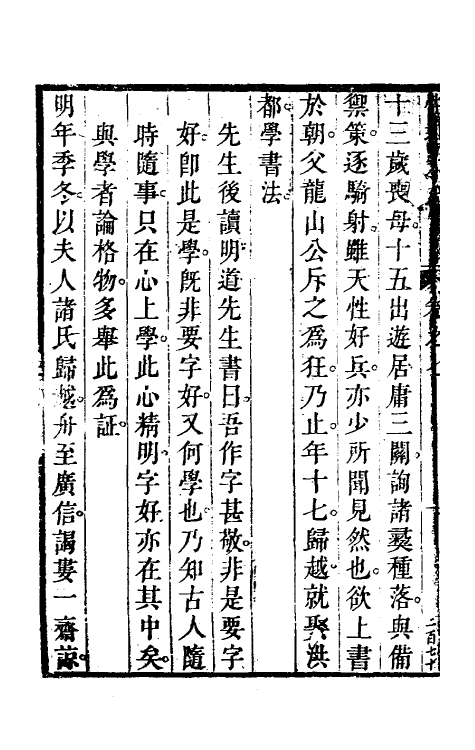 十三歲喪母十五出遊居庸三關詢諸夷種落與備
禦策逐騎射雖天性好兵亦少所聞見然也欲上書
於朝父龍山公斥之爲狂乃止年十七歸越就娶洪
都學書法
先生後讀明道先生書曰吾作字甚敬非是要字
好卽此是學旣非要字好又何學也乃知古人隨
時隨事只在心上學此心精明字好亦在其中矣
與學者論格物多舉此爲証
明年季冬以夫人諸氏歸越舟至廣信謁婁一齋諒